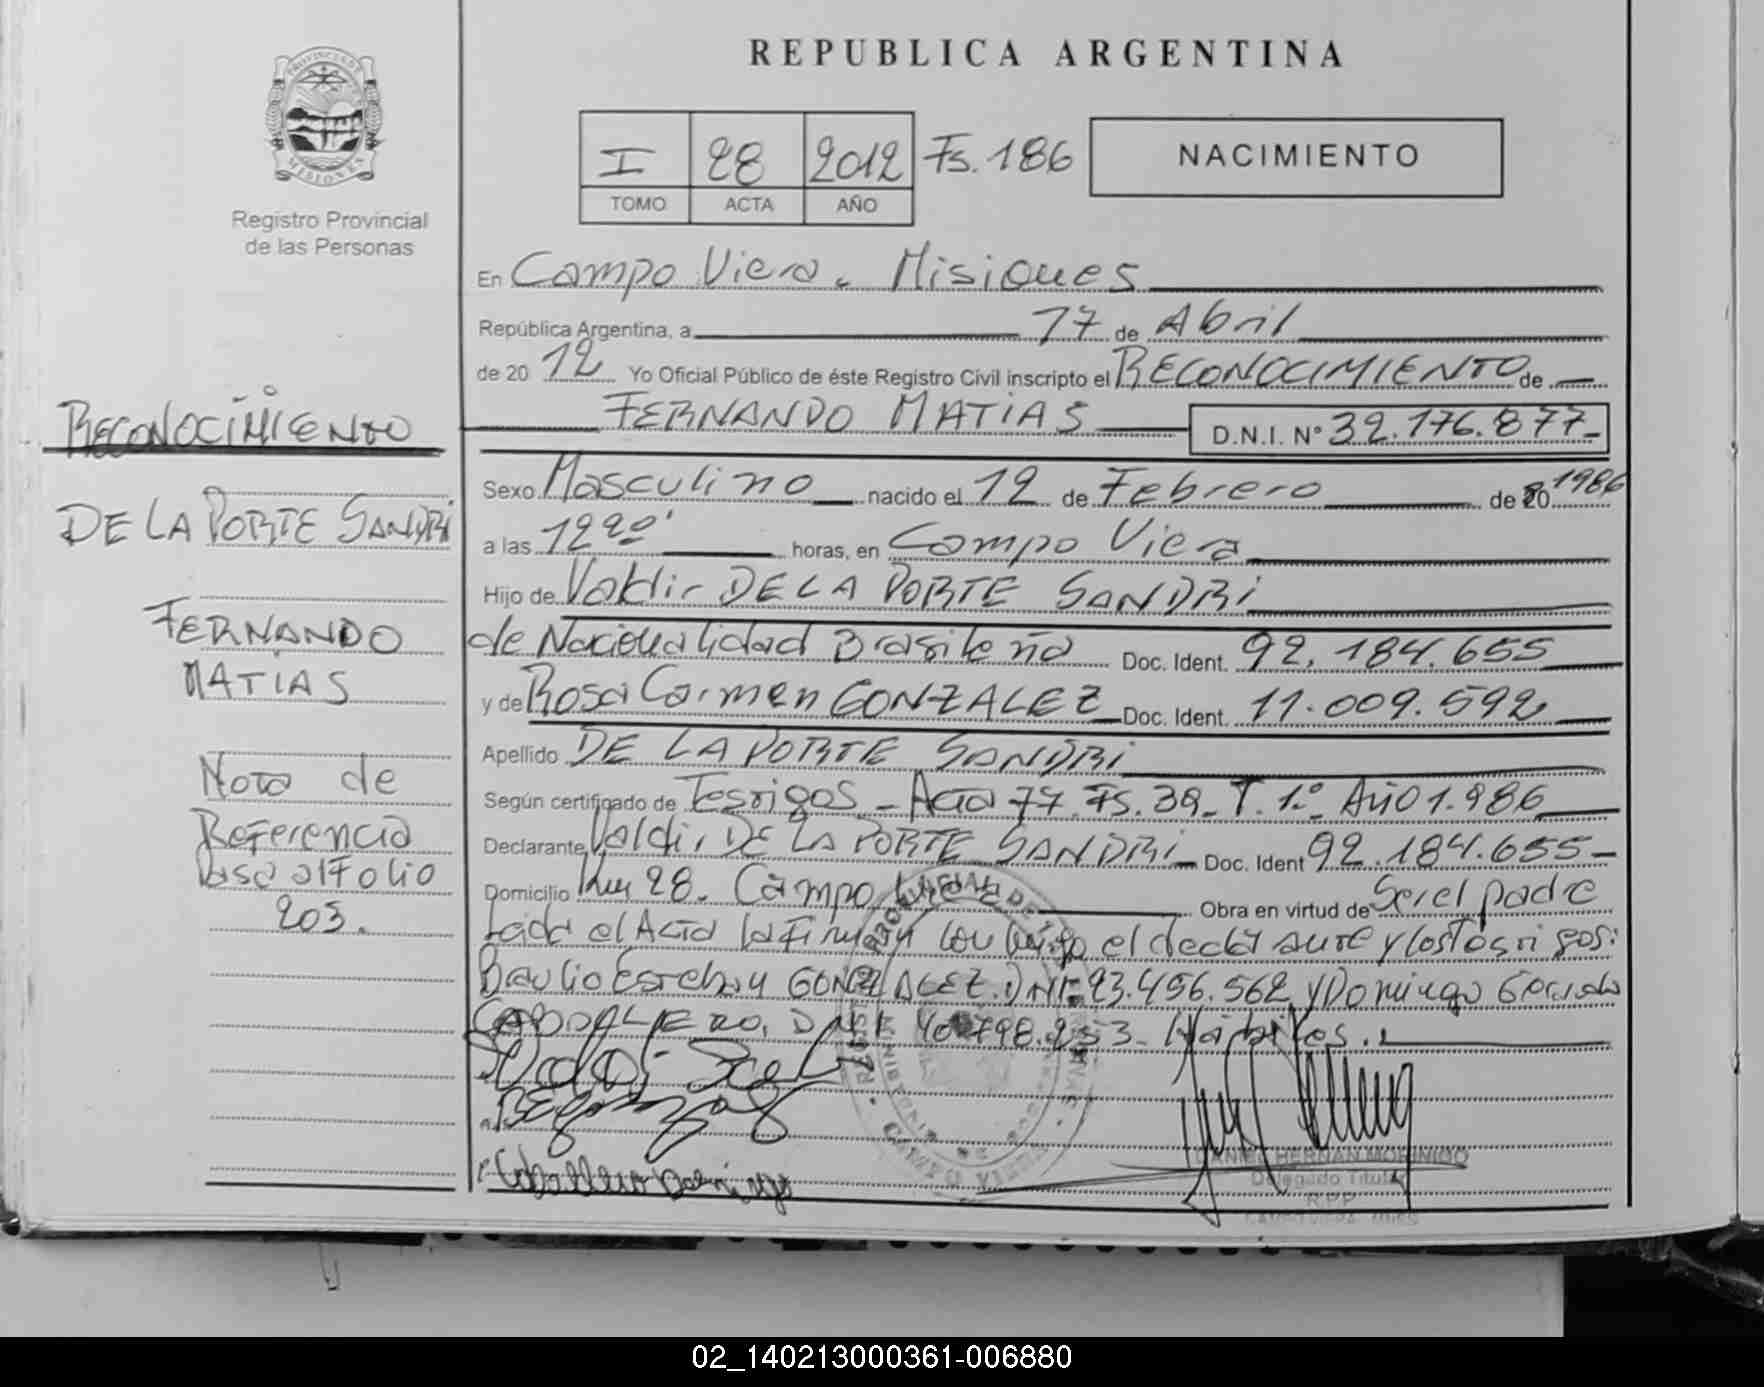 REPUBLICA ARGENTINA
PROVINCIA DE
MISIONES
Registro Provincial
de las Personas
I 28 2012 Fs. 186
TOMO ACTA AÑO
NACIMIENTO
En Campo Viera. Misiones
República Argentina, a 17 de Abril
de 2012 Yo Oficial Público de éste Registro Civil inscripto el RECONOCIMIENTO de
FERNANDO MATIAS D.N.I. N° 32.176.877-
Sexo Masculino nacido el 12 de Febrero de 20 1986
a las 12 20' horas, en Campo Viera
Hijo de Valdir DE LA PORTE SANDRI
de Nacionalidad Brasileña Doc. Ident. 92.184.655
y de Rosa Carmen GONZALEZ Doc. Ident. 11.009.592
Apellido DE LA PORTE SANDRI
Según certificado de Testigos - Acta 77. Fs. 39. T. 1.° Año 1.986
Declarante Valdir DE LA PORTE SANDRI Doc. Ident 92.184.655-
Domicilio Km 28. Campo Viera Obra en virtud de Ser el padre
Leida el Acta la Firman conmigo el declarante y los testigos:
Braulio Esteban GONZALEZ. DNI: 93.456.562 y Domingo
CABALLERO, DNI 798.253- Hábiles.
Caballero Domingo
DANIEL HERNAN
Delegado Titular
R.P.P
CAMPO VIERA MNES
RECONOCIMIENTO
DE LA PORTE SANDRI
FERNANDO
MATIAS
Nota de
Referencia
Pasa al Folio
203.
02_140213000361-006880